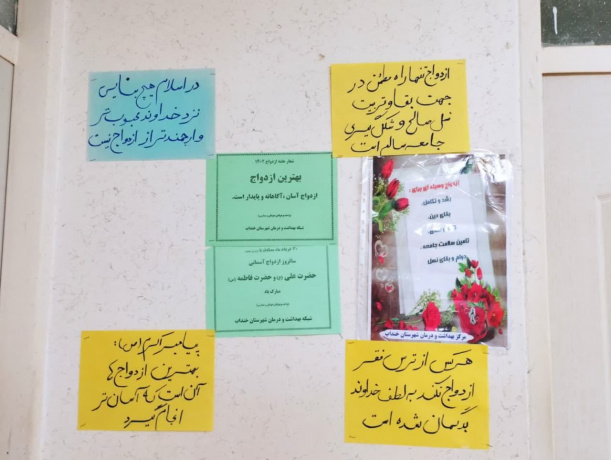 در اسلام هیچ بنایی
نزد خداوند محبوب تر
و ارجمندتر از ازدواج نیست
ازدواج تنها راه مطمئن در
جهت بقا و تربیت
نسل صالح و شکل گیری
جامعه سالم است
شعار هفته ازدواج ۱۴۰۲
بهترین ازدواج
ازدواج آسان ، آگاهانه و پایدار است.
شبکه بهداشت و درمان شهرستان خنداب
سالروز ازدواج آسمانی
حضرت علی (ع) و حضرت فاطمه (س)
مبارک باد
شبکه بهداشت و درمان شهرستان خنداب
ازدواج وسیله ای برای :
رشد و تکامل،
بقای دین،
تامین سلامت جامعه،
دوام و بقای نسل
مرکز بهداشت و درمان شهرستان خنداب
پیامبر اکرم (ص):
بهترین ازدواج ها
آن است که آسان تر
انجام گیرد
هر کس از ترس فقر
ازدواج نکند به لطف خداوند
بدگمان شده است